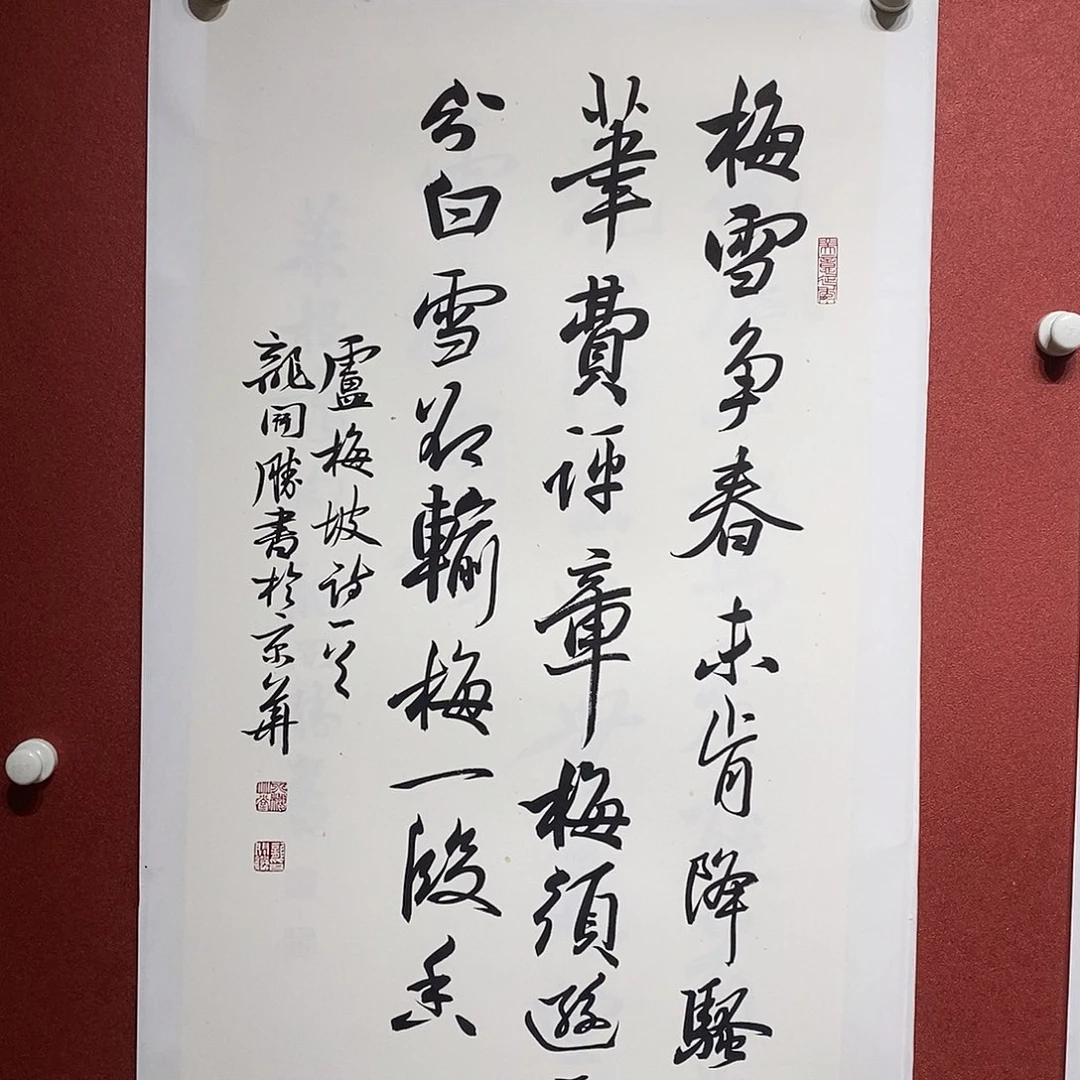 梅雪争春未肯降騷
筆費評章梅須遜
分白雪却輸梅一段香
盧梅坡詩一首
龍開勝書於京華